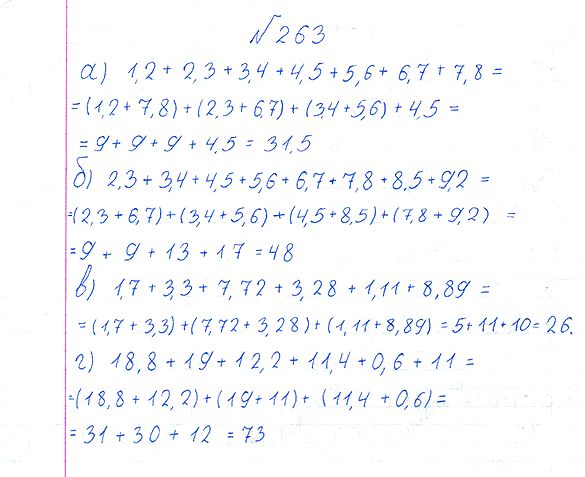 №263
а) 1,2 + 2,3 + 3,4 + 4,5 + 5,6 + 6,7 + 7,8 =
= (1,2 + 7,8) + (2,3 + 6,7) + (3,4 + 5,6) + 4,5 =
= 9 + 9 + 9 + 4,5 = 31,5
б) 2,3 + 3,4 + 4,5 + 5,6 + 6,7 + 7,8 + 8,5 + 9,2 =
= (2,3 + 6,7) + (3,4 + 5,6) + (4,5 + 8,5) + (7,8 + 9,2) =
= 9 + 9 + 13 + 17 = 48
в) 1,7 + 3,3 + 7,72 + 3,28 + 1,11 + 8,89 =
= (1,7 + 3,3) + (7,72 + 3,28) + (1,11 + 8,89) = 5 + 11 + 10 = 26.
г) 18,8 + 19 + 12,2 + 11,4 + 0,6 + 11 =
= (18,8 + 12,2) + (19 + 11) + (11,4 + 0,6) =
= 31 + 30 + 12 = 73